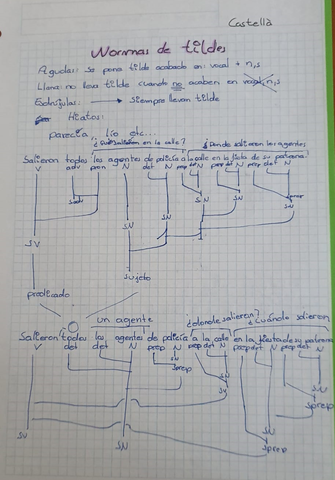 Castella
Normas de tildes
Agudas: se pone tilde acabado en: vocal + n,s
Llana: no lleva tilde cuando no acaben en vocal n,s
Esdrújulas: → siempre llevan tilde
Hiatos:
parecía, lío etc...
salieron en la calle? ¿Donde salieron los agentes
Salieron todos los agentes de policía a la calle en la fiesta de su patrona.
V adv pron N det N prep det N prep det N prep det N
Sadv SN SN
SN SN
SN
SV
Sujeto
predicado
un agente ¿donde salieron? ¿Cuándo salieron
Salieron todos los agentes de policía a la calle en la fiesta de su patrona
V det det N prep N prep det N prep det N prep det N
Sprep
SN
Sprep
SV SN Sprep